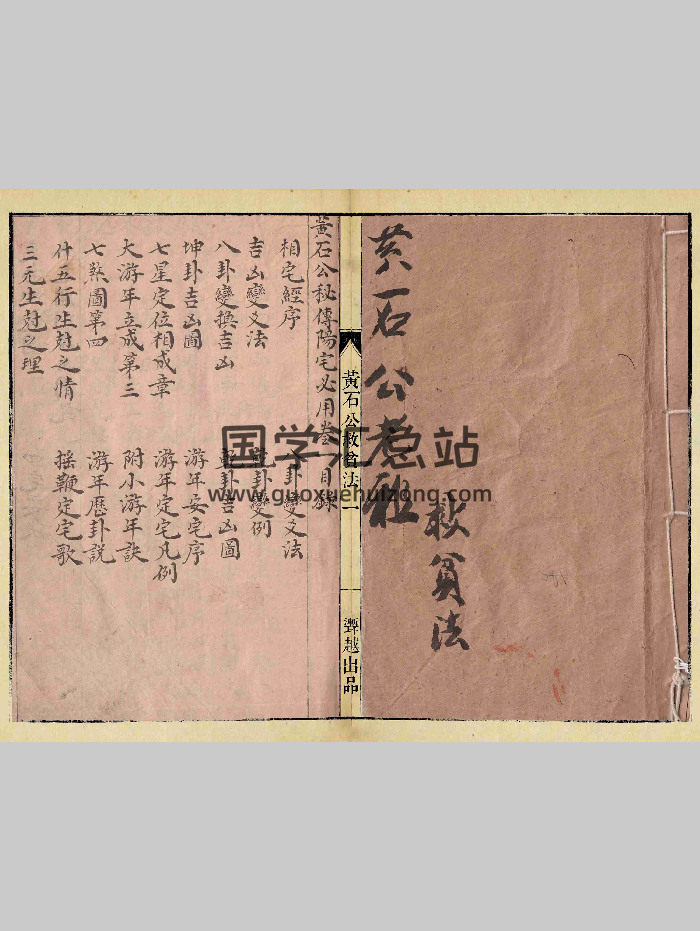 黃石公
救貧法
黃石公救貧法
一
聹越出品
黃石公秘傳陽宅必用卷 目錄
相宅經序
八卦變爻法
吉凶變爻法
乾卦變例
八卦變換吉凶
乾卦吉凶圖
坤卦吉凶圖
游年安宅序
七星定位相成章
游年定宅凡例
大游年立成第三
附小游年訣
七煞圖第四
游年歷卦説
什五行生尅之情
搖鞭定宅歌
三元生尅之理
国学汇总站
www.guoxuehuizong.com